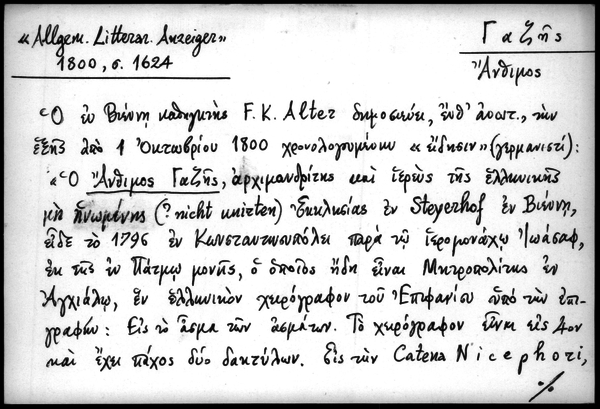 «Allgem. Litterar. Anzeiger»
1800, σ. 1624
Γαζῆς
Ἄνθιμος
Ὁ ἐν Βιέννῃ καθηγητὴς F. K. Alter δημοσιεύει, ἔνθ' ἀνωτ., τὴν
ἑξῆς ἀπὸ 1 Ὀκτωβρίου 1800 χρονολογουμένην «εἴδησιν» (γερμανιστί):
«Ὁ Ἄνθιμος Γαζῆς, ἀρχιμανδρίτης καὶ ἱερεὺς τῆς ἑλληνικῆς
μὴ ἡνωμένης (? nicht unirten) Ἐκκλησίας ἐν Steyerhof ἐν Βιέννῃ,
εἶδε τὸ 1796 ἐν Κωνσταντινουπόλει παρὰ τῷ ἱερομονάχῳ Ἰωάσαφ,
ἐκ τῆς ἐν Πάτμῳ μονῆς, ὁ ὁποῖος ἤδη εἶναι Μητροπολίτης ἐν
Ἀγχιάλῳ, ἓν ἑλληνικὸν χειρόγραφον τοῦ Ἐπιφανίου ὑπὸ τὴν ἐπι-
γραφήν: Εἰς τὸ ἆσμα τῶν ἀσμάτων. Τὸ χειρόγραφον εἶναι εἰς 4ον
καὶ ἔχει πάχος δύο δακτύλων. Εἰς τὴν Catena Nicephori,
%